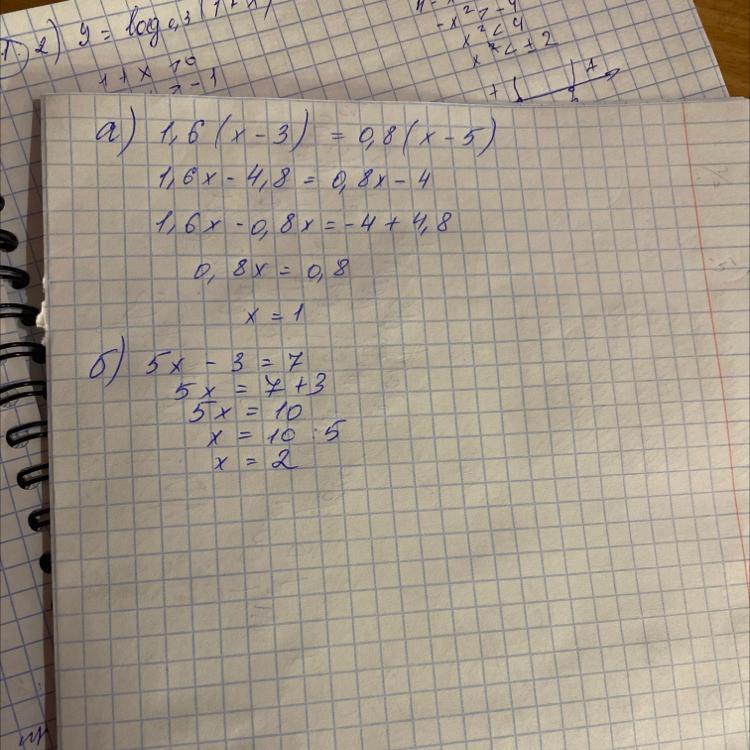 2) y = log 0,3 (1+x)
1 + x > 0
> -1
-x² > -4
x² < 4
x < ± 2
а) 1,6 (x - 3) = 0,8 (x - 5)
1,6x - 4,8 = 0,8x - 4
1,6x - 0,8x = -4 + 4,8
0,8x = 0,8
x = 1
б) 5x - 3 = 7
5x = 7 + 3
5x = 10
x = 10 : 5
x = 2